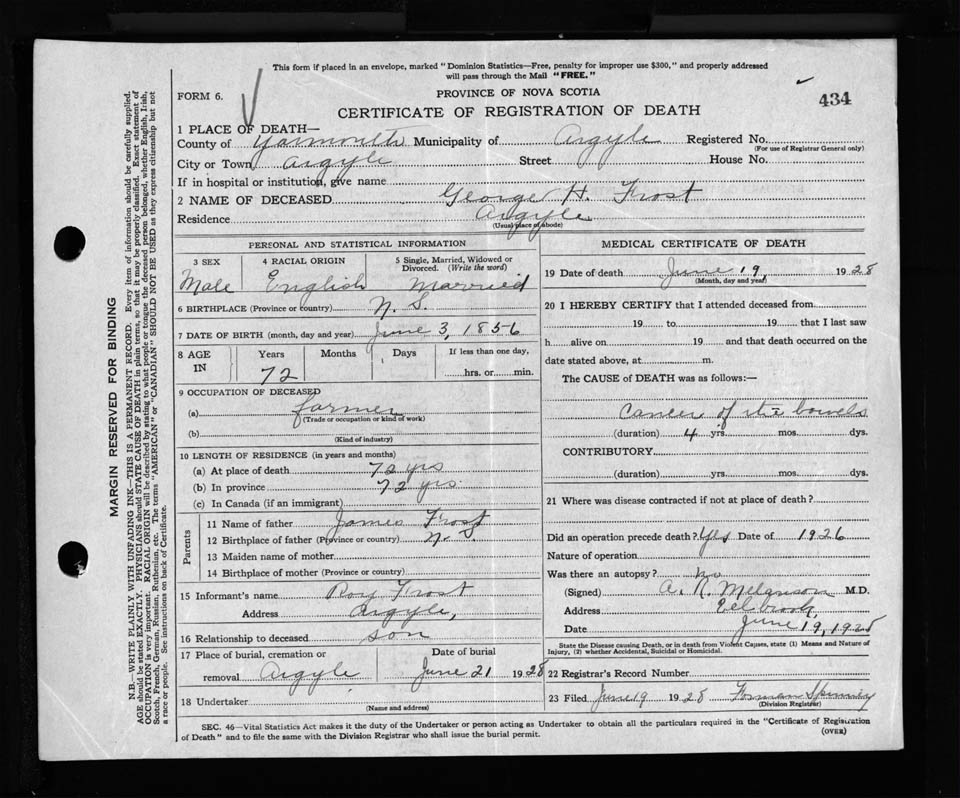 This form if placed in an envelope, marked "Dominion Statistics—Free, penalty for improper use $300," and properly addressed
will pass through the Mail "FREE."
FORM 6.
PROVINCE OF NOVA SCOTIA
434
CERTIFICATE OF REGISTRATION OF DEATH
1 PLACE OF DEATH—
County of Yarmouth Municipality of Argyle Registered No.
(For use of Registrar General only)
City or Town Argyle Street House No.
If in hospital or institution, give name
2 NAME OF DECEASED George H. Frost
Residence Argyle
(Usual place of abode)
PERSONAL AND STATISTICAL INFORMATION
3 SEX 4 RACIAL ORIGIN 5 Single, Married, Widowed or
Divorced. (Write the word)
Male English Married
6 BIRTHPLACE (Province or country) N. S.
7 DATE OF BIRTH (month, day and year) June 3, 1856
8 AGE IN Years Months Days If less than one day,
72 hrs. or min.
9 OCCUPATION OF DECEASED
(a) farmer
(Trade or occupation or kind of work)
(b)
(Kind of industry)
10 LENGTH OF RESIDENCE (in years and months)
(a) At place of death 72 yrs
(b) In province 72 yrs.
(c) In Canada (if an immigrant)
Parents
11 Name of father James Frost
12 Birthplace of father (Province or country) N. S.
13 Maiden name of mother
14 Birthplace of mother (Province or country)
15 Informant's name Roy Frost
Address Argyle,
16 Relationship to deceased son
17 Place of burial, cremation or Date of burial
removal Argyle June 21 1928
18 Undertaker
(Name and address)
MEDICAL CERTIFICATE OF DEATH
19 Date of death June 19, 1928
(Month, day and year)
20 I HEREBY CERTIFY that I attended deceased from
19 to 19 that I last saw
h alive on 19 and that death occurred on the
date stated above, at m.
The CAUSE of DEATH was as follows:—
Cancer of the bowels
(duration) 4 yrs. mos. dys.
CONTRIBUTORY
(duration) yrs. mos. dys.
21 Where was disease contracted if not at place of death?
Did an operation precede death? Yes Date of 1926
Nature of operation
Was there an autopsy? no
(Signed) A. R. Melanson M.D.
Address Eelbrook
Date June 19, 1928
State the Disease causing Death, or in death from Violent Causes, state (1) Means and Nature of
Injury, (2) whether Accidental, Suicidal or Homicidal.
22 Registrar's Record Number
23 Filed June 19 1928 Forman Spinney
(Division Registrar)
SEC. 46—Vital Statistics Act makes it the duty of the Undertaker or person acting as Undertaker to obtain all the particulars required in the "Certificate of Registration
of Death" and to file the same with the Division Registrar who shall issue the burial permit.
(OVER)
MARGIN RESERVED FOR BINDING
N.B.—WRITE PLAINLY WITH UNFADING INK—THIS IS A PERMANENT RECORD. Every item of information should be carefully supplied.
AGE should be stated EXACTLY. PHYSICIANS should STATE CAUSE OF DEATH in plain terms, so that it may be properly classified. Exact statement of
OCCUPATION is very important. RACIAL ORIGIN will be described by stating to what people or tongue the deceased person belonged, whether English, Irish,
Scotch, French, German, Russian, Ruthenian, etc. The terms "AMERICAN" or "CANADIAN" SHOULD NOT BE USED as they express citizenship but not
a race or people. See instructions on back of Certificate.